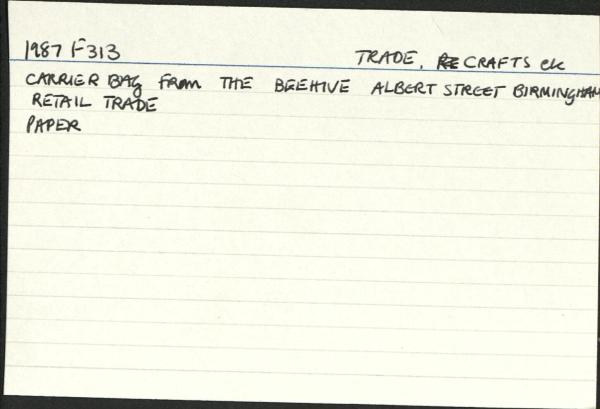 1987 F313 TRADE, CRAFTS etc
CARRIER BAG from THE BEEHIVE ALBERT STREET BIRMINGHAM
RETAIL TRADE
PAPER